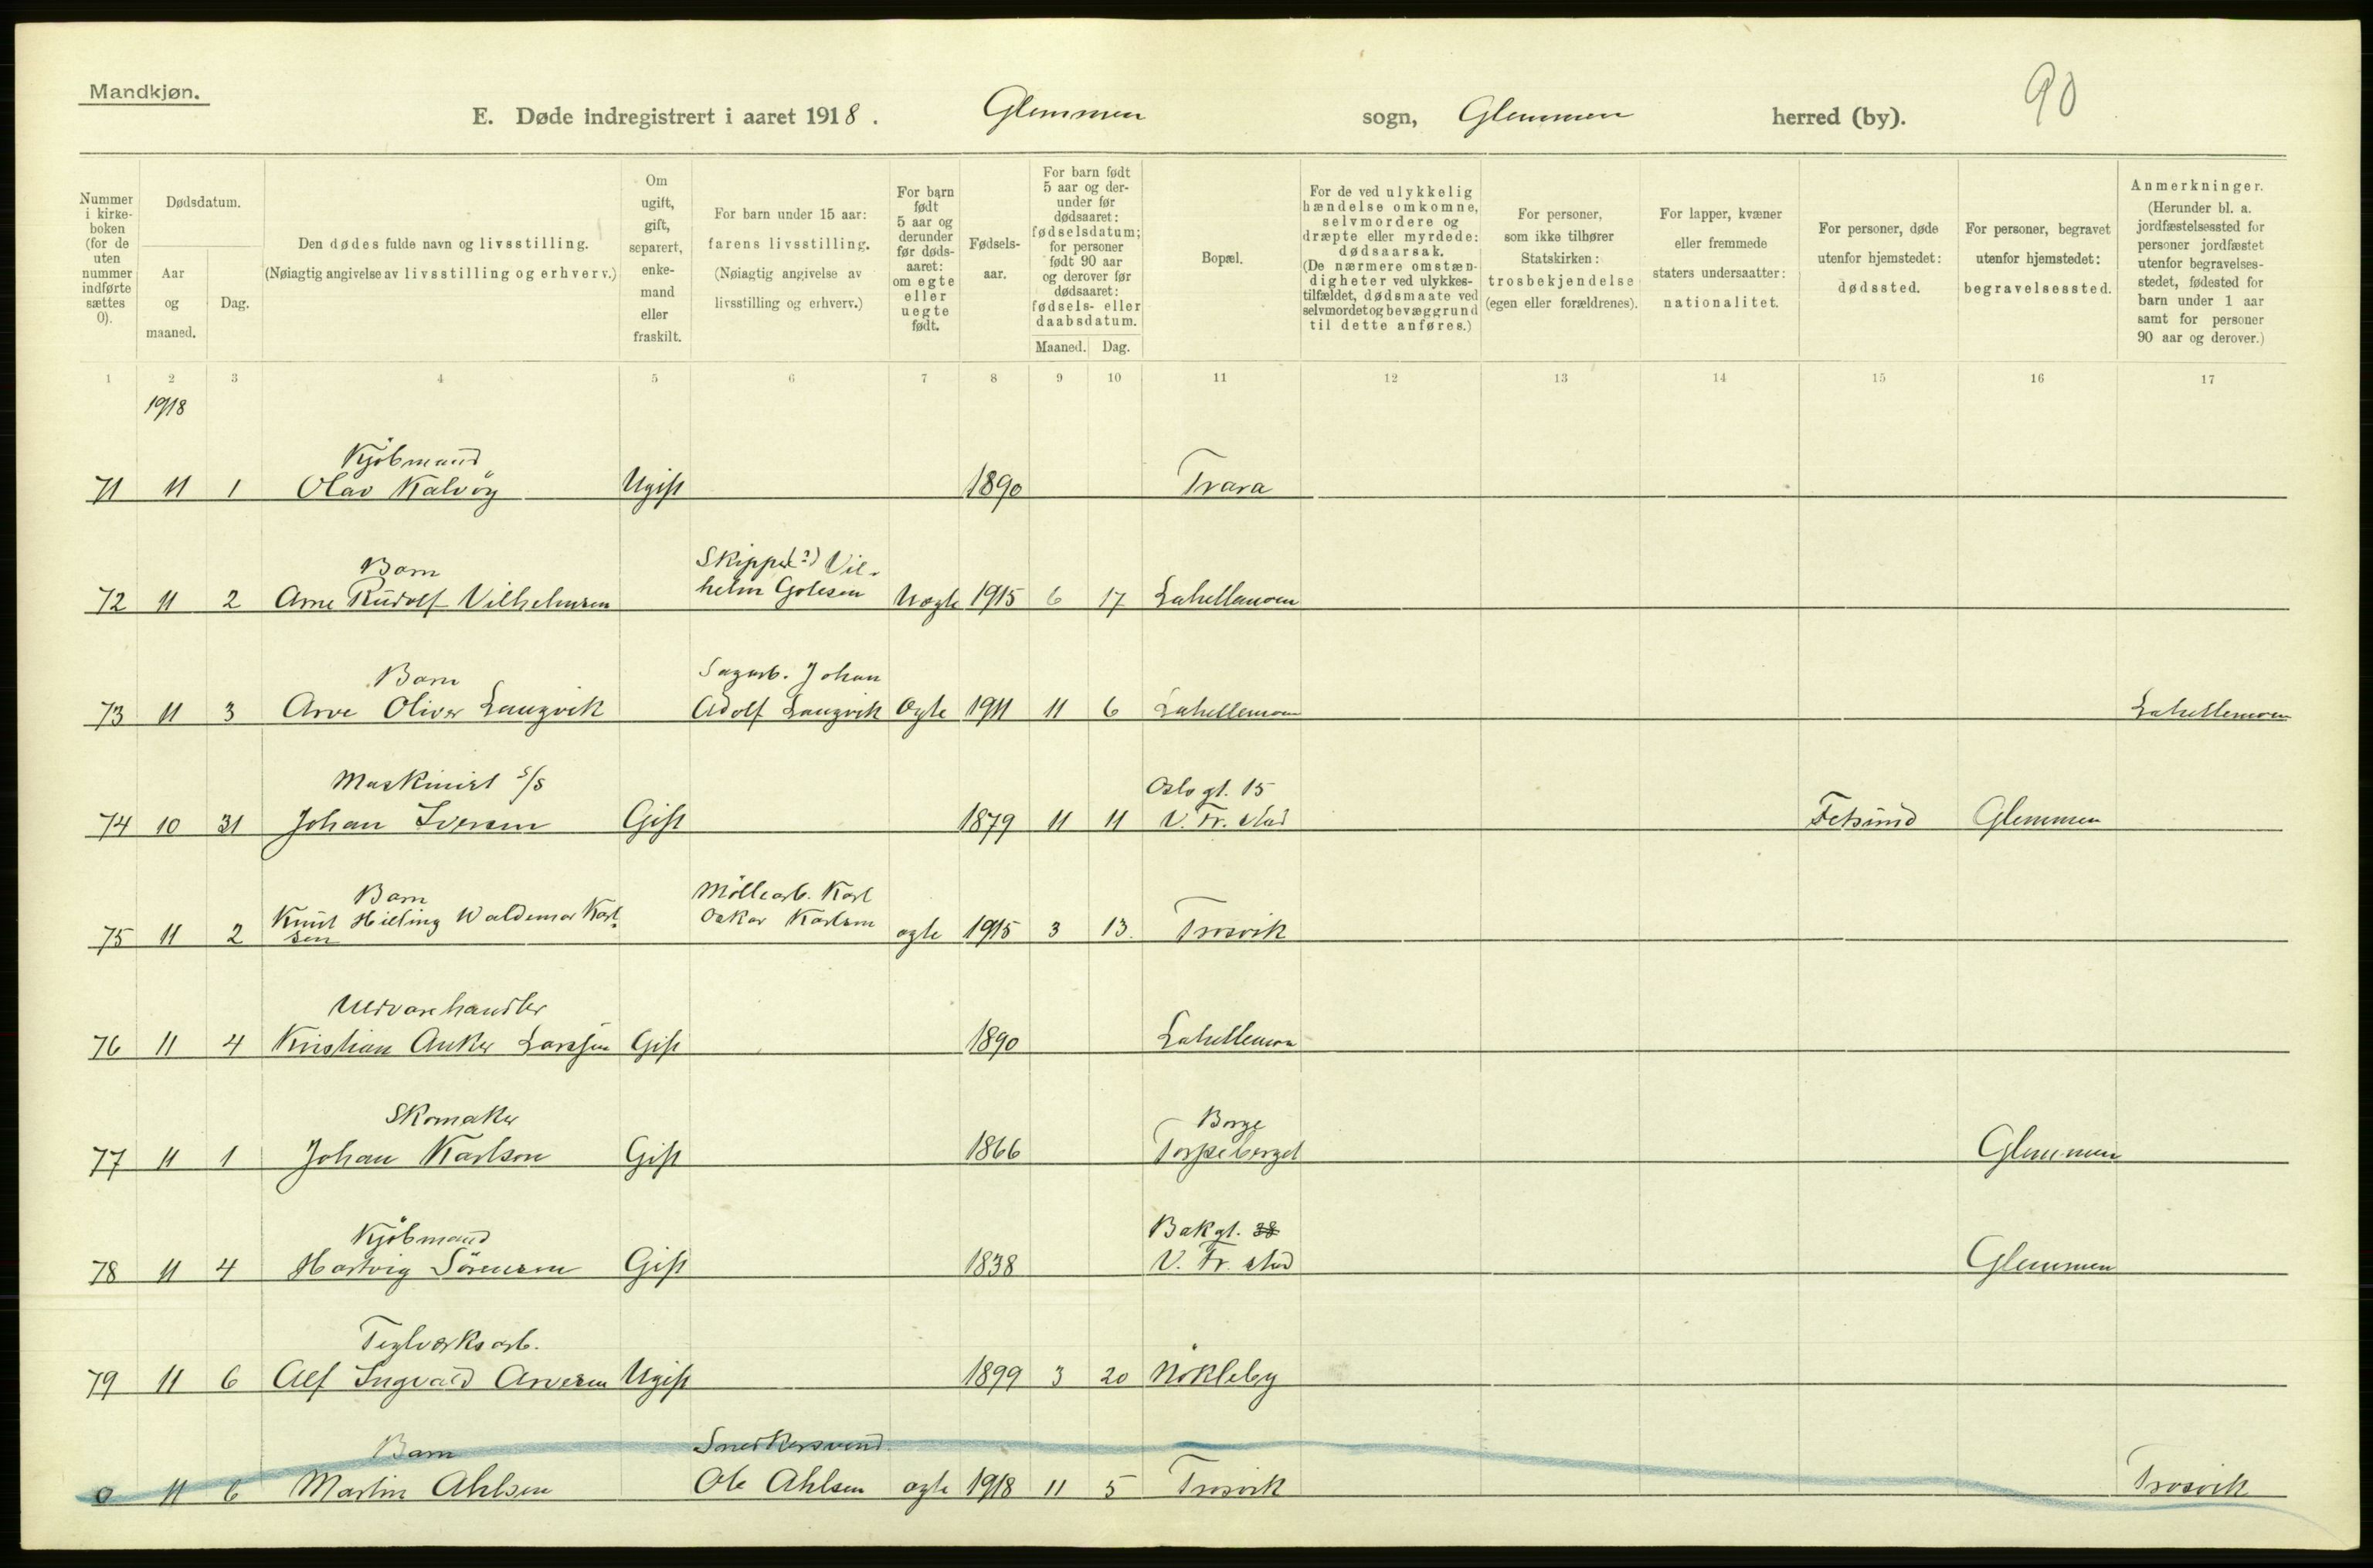 Mandkjøn.
90
E. Døde indregistrert i aaret 1918. Glemmen sogn, Glemmen herred (by).
Nummer i kirke-boken (for de uten nummer indførte sættes 0).
Dødsdatum.
Aar og maaned.
Dag.
Den dødes fulde navn og livsstilling.
(Nøiagtig angivelse av livsstilling og erhverv.)
Om ugift, gift, separert, enke-mand eller fraskilt.
For barn under 15 aar:
farens livsstilling.
(Nøiagtig angivelse av
livsstilling og erhverv.)
For barn født 5 aar og derunder før døds-aaret: om egte eller uegte født.
Fødsels-aar.
For barn født 5 aar og der-under før dødsaaret: fødselsdatum; for personer født 90 aar og derover før dødsaaret: fødsels- eller daabsdatum.
Maaned. Dag.
Bopæl.
For de ved ulykkelig hændelse omkomne, selvmordere og dræpte eller myrdede: dødsaarsak.
(De nærmere omstæn-digheter ved ulykkes-tilfældet, dødsmaate ved selvmordet og bevæggrund til dette anføres.)
For personer, som ikke tilhører Statskirken: trosbekjendelse (egen eller forældrenes).
For lapper, kvæner eller fremmede staters undersaatter: nationalitet.
For personer, døde utenfor hjemstedet: dødssted.
For personer, begravet utenfor hjemstedet: begravelsessted.
Anmerkninger.
(Herunder bl. a. jordfæstelsessted for personer jordfæstet utenfor begravelses-stedet, fødested for barn under 1 aar samt for personer 90 aar og derover.)
1 2 3 4 5 6 7 8 9 10 11 12 13 14 15 16 17
1918
Kjöbmand
71 11 1 Olav Kalvöy Ugift 1890 Trara
Barn Skipper(?) Vil-
72 11 2 Arne Rudolf Vilhelmsen helm Golesen Uegte 1915 6 17 Lahellemoen
Barn Sagarb. Johan
73 11 3 Arve Oliver Laugvik Adolf Laugvik Egte 1911 11 6 Lahellemoen Lahellemoen
Maskinist S/S Oslo gt. 15
74 10 31 Johan Iversen Gift 1879 11 11 V. Fr. stad Fetsund Glemmen
Barn Möllearb. Karl
Knut Hilling Waldemar Karl- Oskar Karlsen
75 11 2 sen egte 1915 3 13. Trosvik
Uldvarehandler
76 11 4 Kristian Anker Larssen Gift 1890 Lahellemoen
Skomaker Borge
77 11 1 Johan Karlson Gift 1866 Torpeberget Glemmen
Kjöbmand Bakgt. 38
78 11 4 Hartvig Sörensen Gift 1838 V. Fr. stad Glemmen
Teglverksarb.
79 11 6 Alf Ingvald Arvesen Ugift 1899 3 20 Nökleby
Barn Snedkersvend
0 11 6 Martin Ahlsen Ole Ahlsen egte 1918 11 5 Trosvik Trosvik